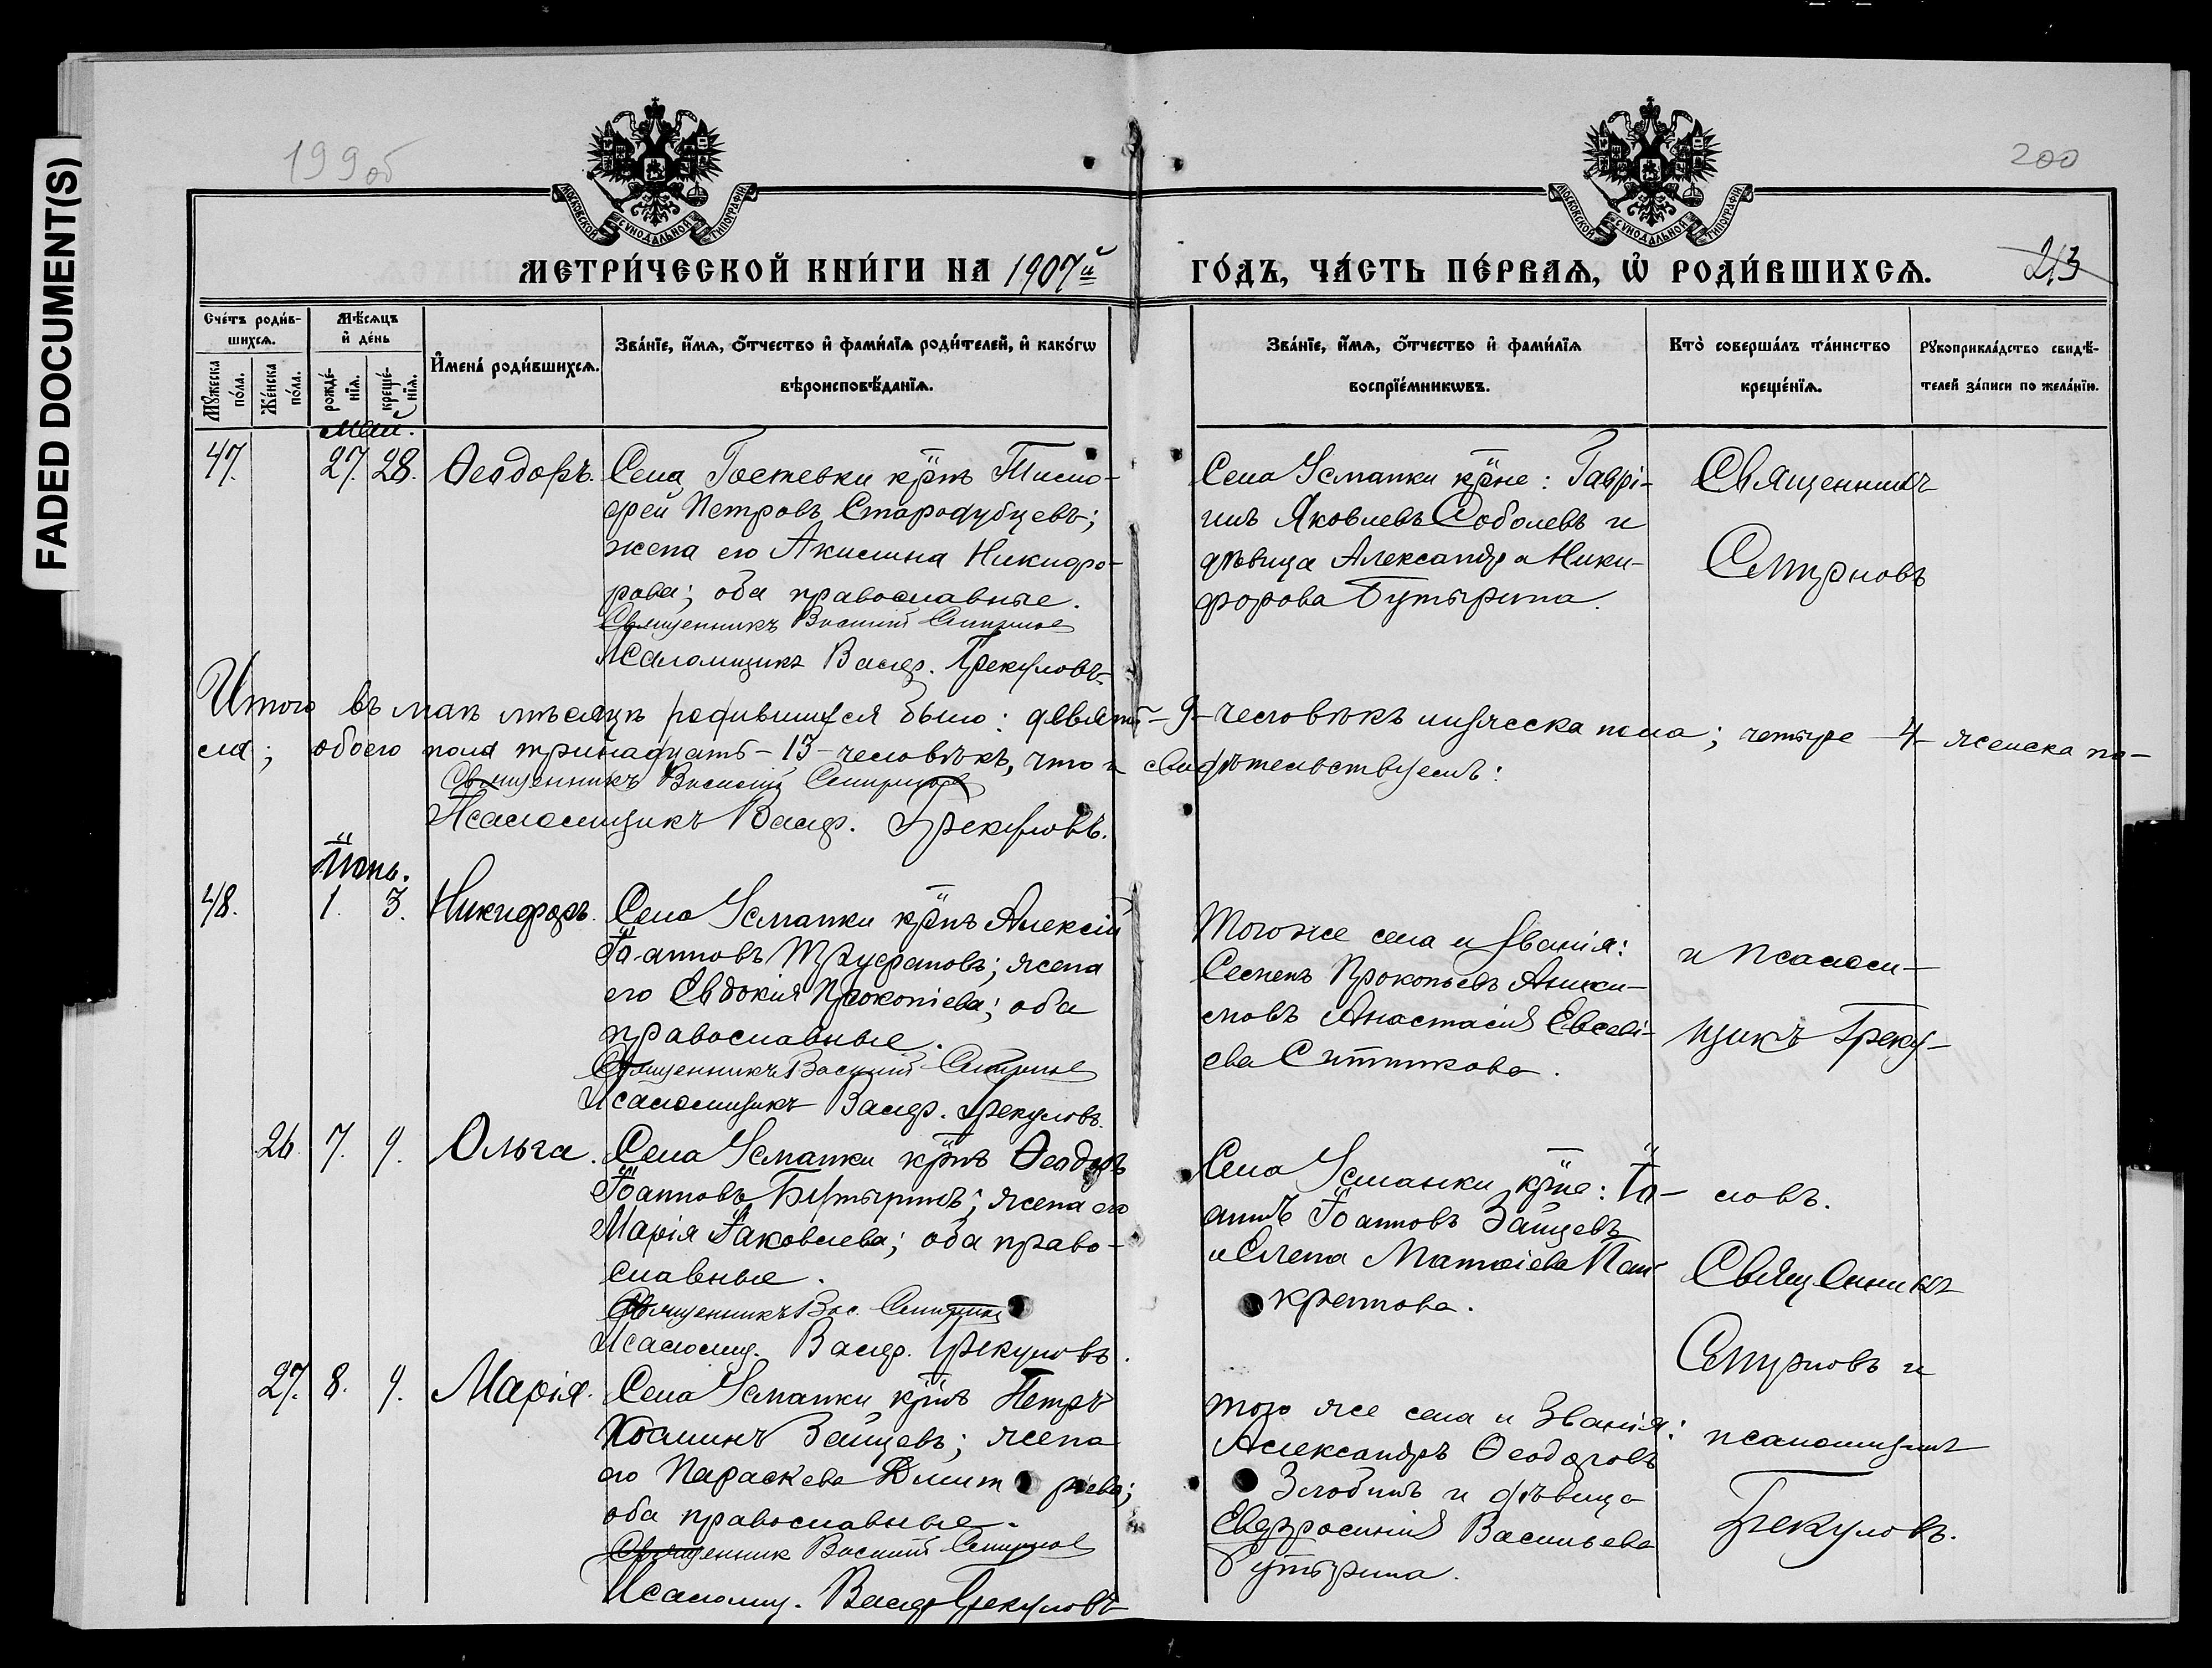 FADED DOCUMENT(S)
199 об
200
МОСКОВСКОЙ СѴНОДАЛЬНОЙ ТИПОГРАФІИ
МОСКОВСКОЙ СѴНОДАЛЬНОЙ ТИПОГРАФІИ
МЕТРИ́ЧЕСКОЙ КНИ́ГИ НА 1907й ГО́ДЪ, ЧА́СТЬ ПЕ́РВАѦ, Ѡ҆ РОДИ́ВШИХСѦ.
213
Сче́тъ роди́в-
шихсѧ.
Мꙋ́жеска
по́ла.
Же́нска
по́ла.
Мѣ́сѧцъ
и҆ де́нь
рожде́-
нїѧ.
креще́-
нїѧ.
И҆мена̀ роди́вшихсѧ.
Зва́нїе, и҆́мѧ, ѻ҆́тчество и҆ фами́лїѧ роди́телей, и҆ како́гѡ
вѣроисповѣ́данїѧ.
Зва́нїе, и҆́мѧ, ѻ҆́тчество и҆ фами́лїѧ
воспрїе́мникѡвъ.
Кто̀ соверша́лъ та́инство
креще́нїѧ.
Рꙋкоприкла́дство свидѣ́-
телей за́писи по жела́нїю.
Май.
47. 27. 28. Ѳеодоръ.
Села Гостевки крнъ Тимо-
фей Петровъ Стародубцевъ;
жена его Акилина Никифо-
рова; оба православные.
Священникъ Василій Смирнов
Псаломщикъ Валер. Грекуловъ.
Села Усманки крне: Гаврі-
илъ Яковлевъ Соболевъ и
дѣвица Александра Ники-
форова Бутырина.
Священникъ
Смирновъ
Итого въ маѣ мѣсяцѣ родившихся было: девять - 9 - человѣкъ мужеска пола; четыре - 4 - женска по-
ла; обоего пола тринадцать - 13 - человѣкъ, что и свидѣтельствуемъ:
Священникъ Василій Смирнов
Псаломщикъ Валер. Грекуловъ.
Іюнь.
48. 1. 3. Никифоръ.
Села Усманки крнъ Алексій
Іоанновъ Труфановъ; жена
его Евдокія Прокопіева; оба
православные.
Священникъ Василій Смирнов
Псаломщикъ Валер. Грекуловъ.
Того же села и званія:
Семенъ Прокопьевъ Аники-
новъ Анастасія Евсеі-
ева Ситникова.
и псалом-
щикъ Греку-
26. 7. 9. Ольга.
Села Усманки крнъ Ѳеодоръ
Іоанновъ Бутыринъ; жена его
Марія Іаковлева; оба право-
славные.
Священникъ Вас. Смирнов
Псаломщ. Валер. Грекуловъ.
Села Усманки крне: Іо-
аннъ Іоанновъ Зайцевъ
и Елена Матѳіева Пан
кратова.
ловъ.
Священникъ
27. 8. 9. Марія.
Села Усманки крнъ Петръ
Козминъ Зайцевъ; жена
его Параскева Димитріева;
оба православные.
Священник Василій Смирнов
Псаломщ. Валер. Грекуловъ
того же села и званія:
Александръ Ѳеодоровъ
Злобинъ и дѣвица
Евфросинія Васильева
Бутырина.
Смирновъ и
псаломщикъ
Грекуловъ.